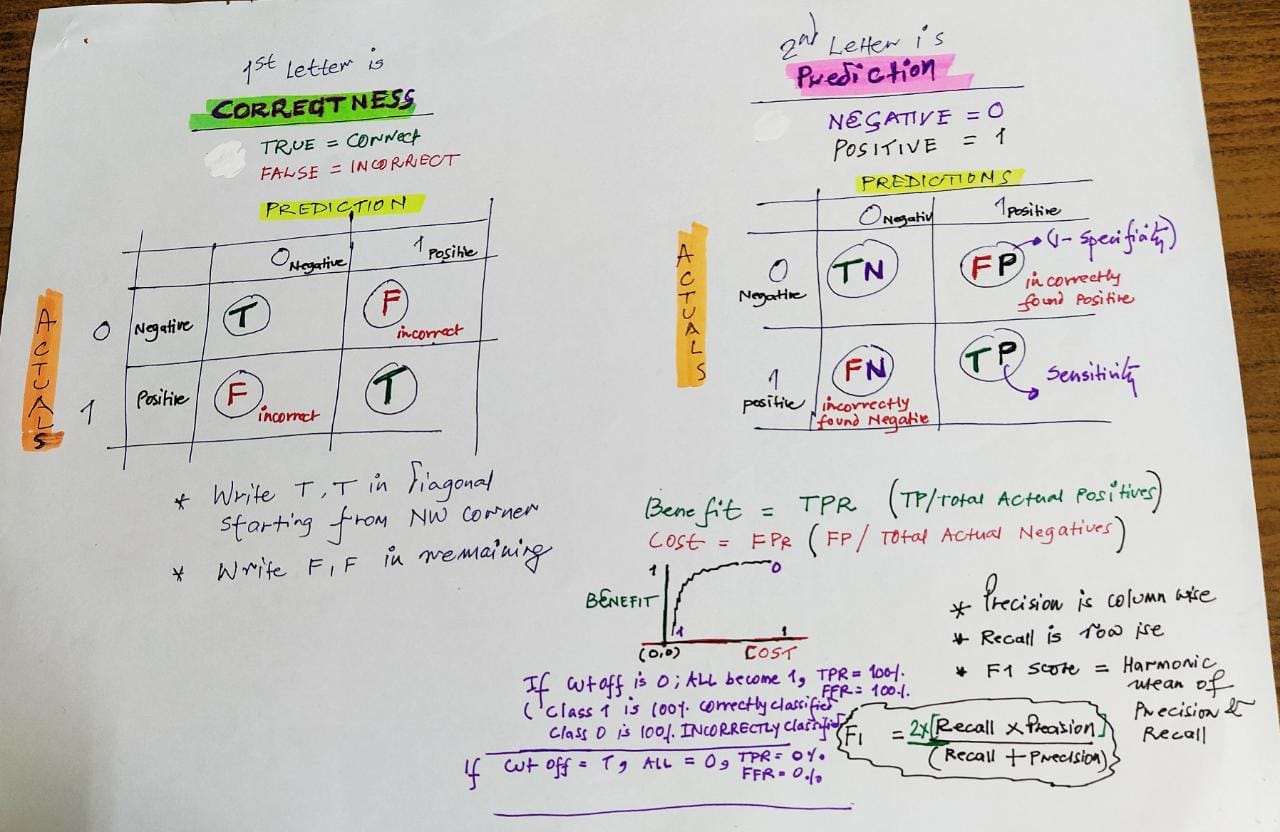 1st Letter is
CORRECTNESS
TRUE = CORRECT
FALSE = INCORRECT
PREDICTION
0 Negative
1 Positive
ACTUALS
0 Negative
T
F
incorrect
1 Positive
F
incorrect
T
* Write T, T in Diagonal
starting from NW corner
* Write F, F in remaining
2nd Letter is
Prediction
NEGATIVE = 0
POSITIVE = 1
PREDICTIONS
0 Negativ
1 Positive
ACTUALS
0
Negative
TN
FP
(1- Specificity)
incorrectly
found Positive
1
positive
FN
incorrectly
found Negative
TP
Sensitivity
Benefit = TPR (TP/Total Actual Positives)
COST = FPR (FP/ Total Actual Negatives)
1
0
BENEFIT
1
1
(0,0)
COST
If cut off is 0; ALL become 1, TPR = 100%.
FFR = 100%.
( Class 1 is 100%. correctly classified
Class 0 is 100%. INCORRECTLY classified
If cut off = 1, ALL = 0, TPR = 0%
FFR = 0%
* Precision is column wise
* Recall is row ise
* F1 score = Harmonic
mean of
Precision &
Recall
F1 = 2x[Recall x Precision]
(Recall + Precision)